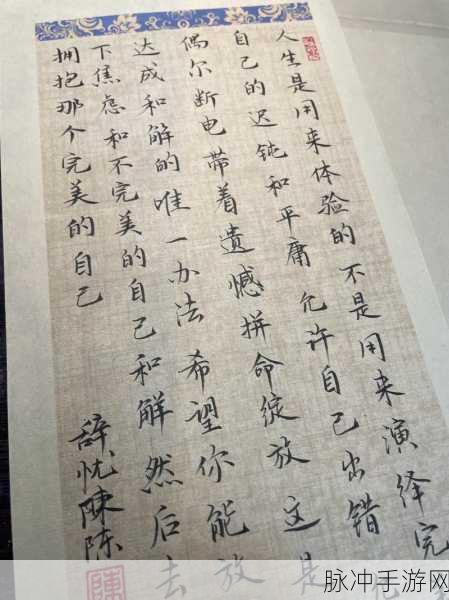 人生是用来体验的不是用来演绎完
自己的迟钝和平庸允许自己出错
偶尔断电带着遗憾拼命绽放这是
达成和解的唯一办法希望你能放
下焦虑和不完美的自己和解然后去
拥抱那个完美的自己
辞忧陳陈
陳
脉冲手游网